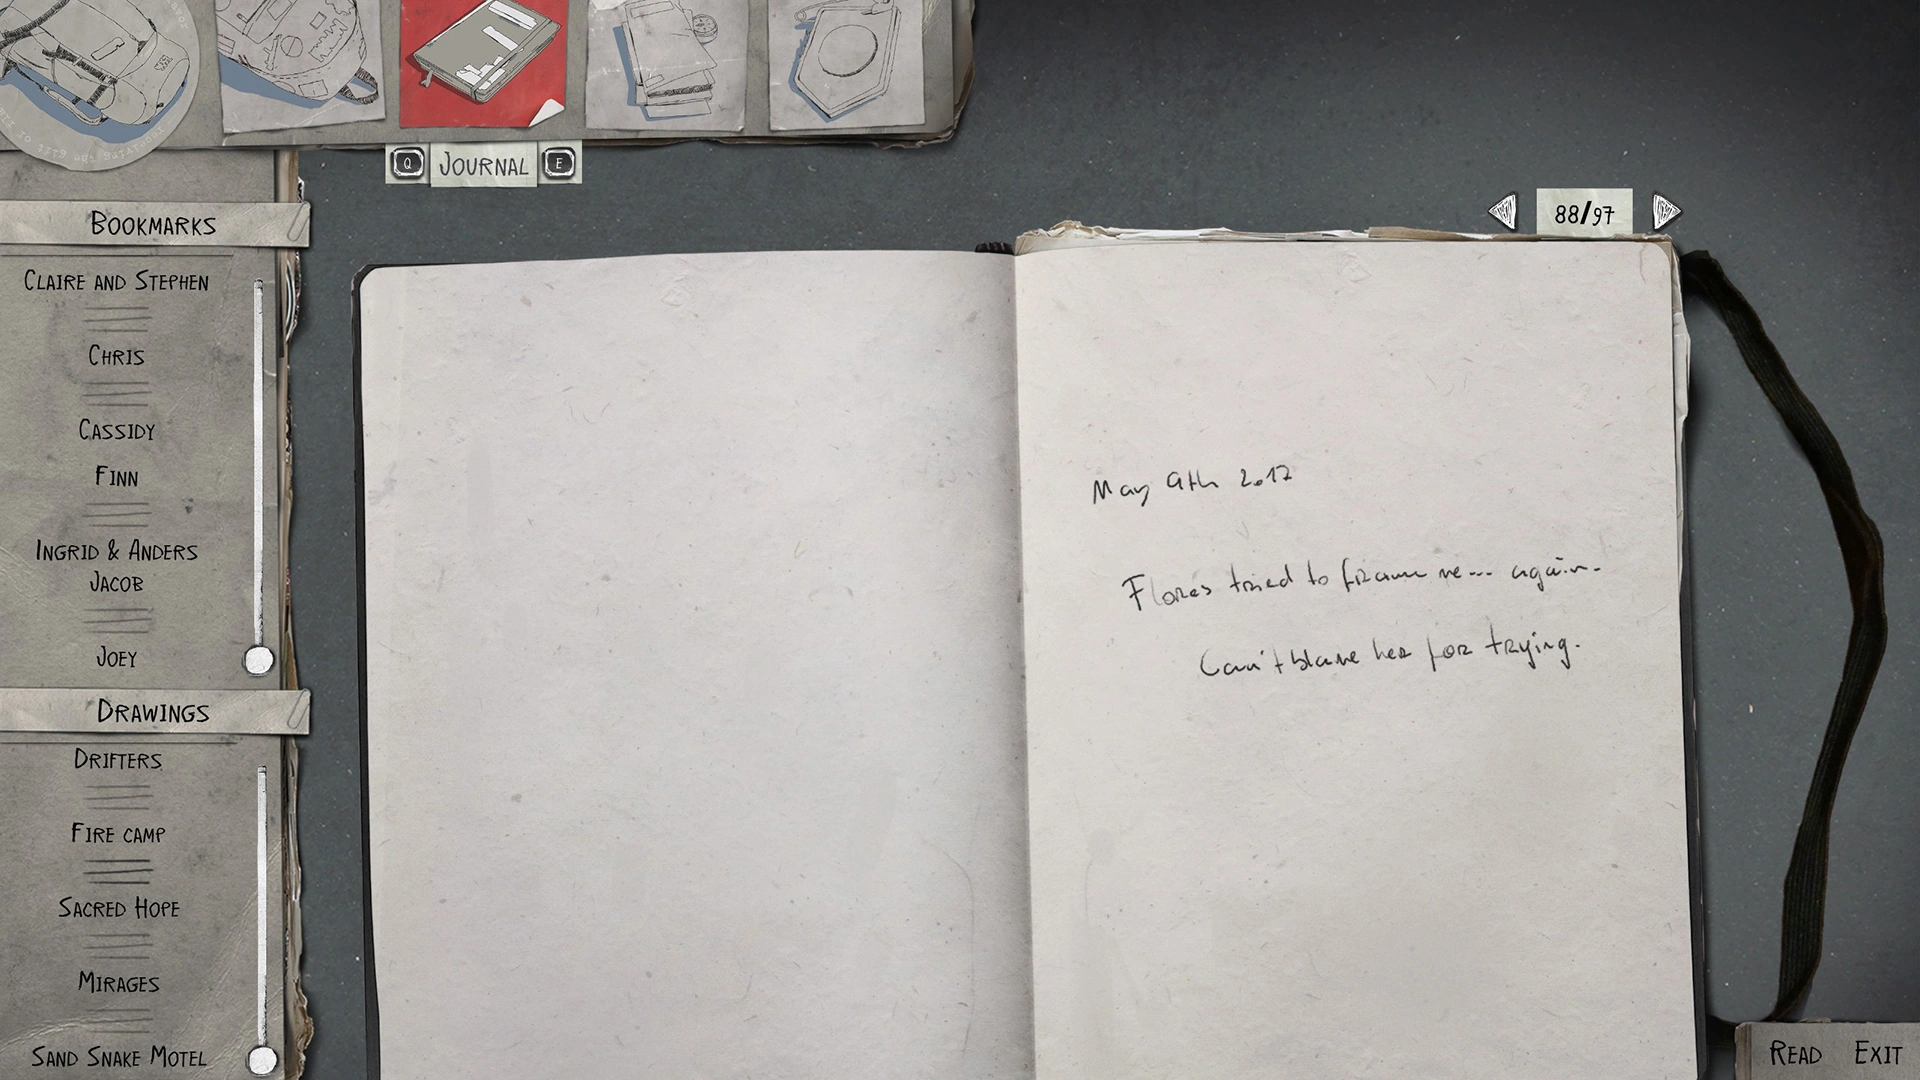 Q JOURNAL E
88/97
BOOKMARKS
CLAIRE AND STEPHEN
CHRIS
CASSIDY
FINN
INGRID & ANDERS
JACOB
JOEY
DRAWINGS
DRIFTERS
FIRE CAMP
SACRED HOPE
MIRAGES
SAND SNAKE MOTEL
May 9th 2017
Flores tried to frame me... again.
Can't blame her for trying.
READ EXIT